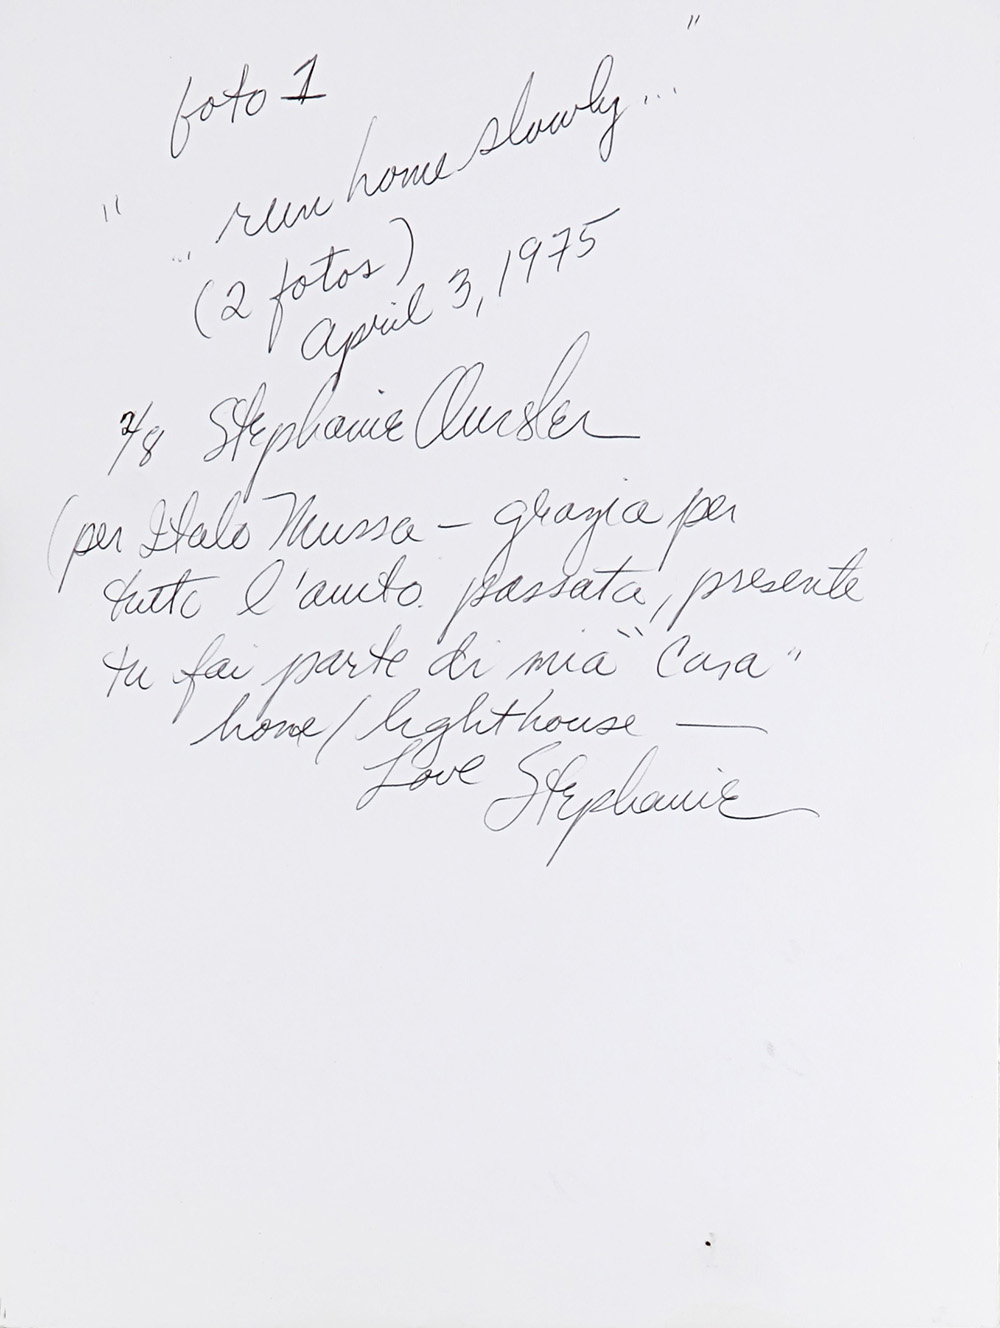 foto 1
"... run home slowly..."
(2 fotos)
April 3, 1975
2/8 Stephanie Oursler
(per Italo Mussa – grazia per
tutto l'auito. passata, presente
tu fai parte di mia "casa"
home/lighthouse —
Love Stephanie